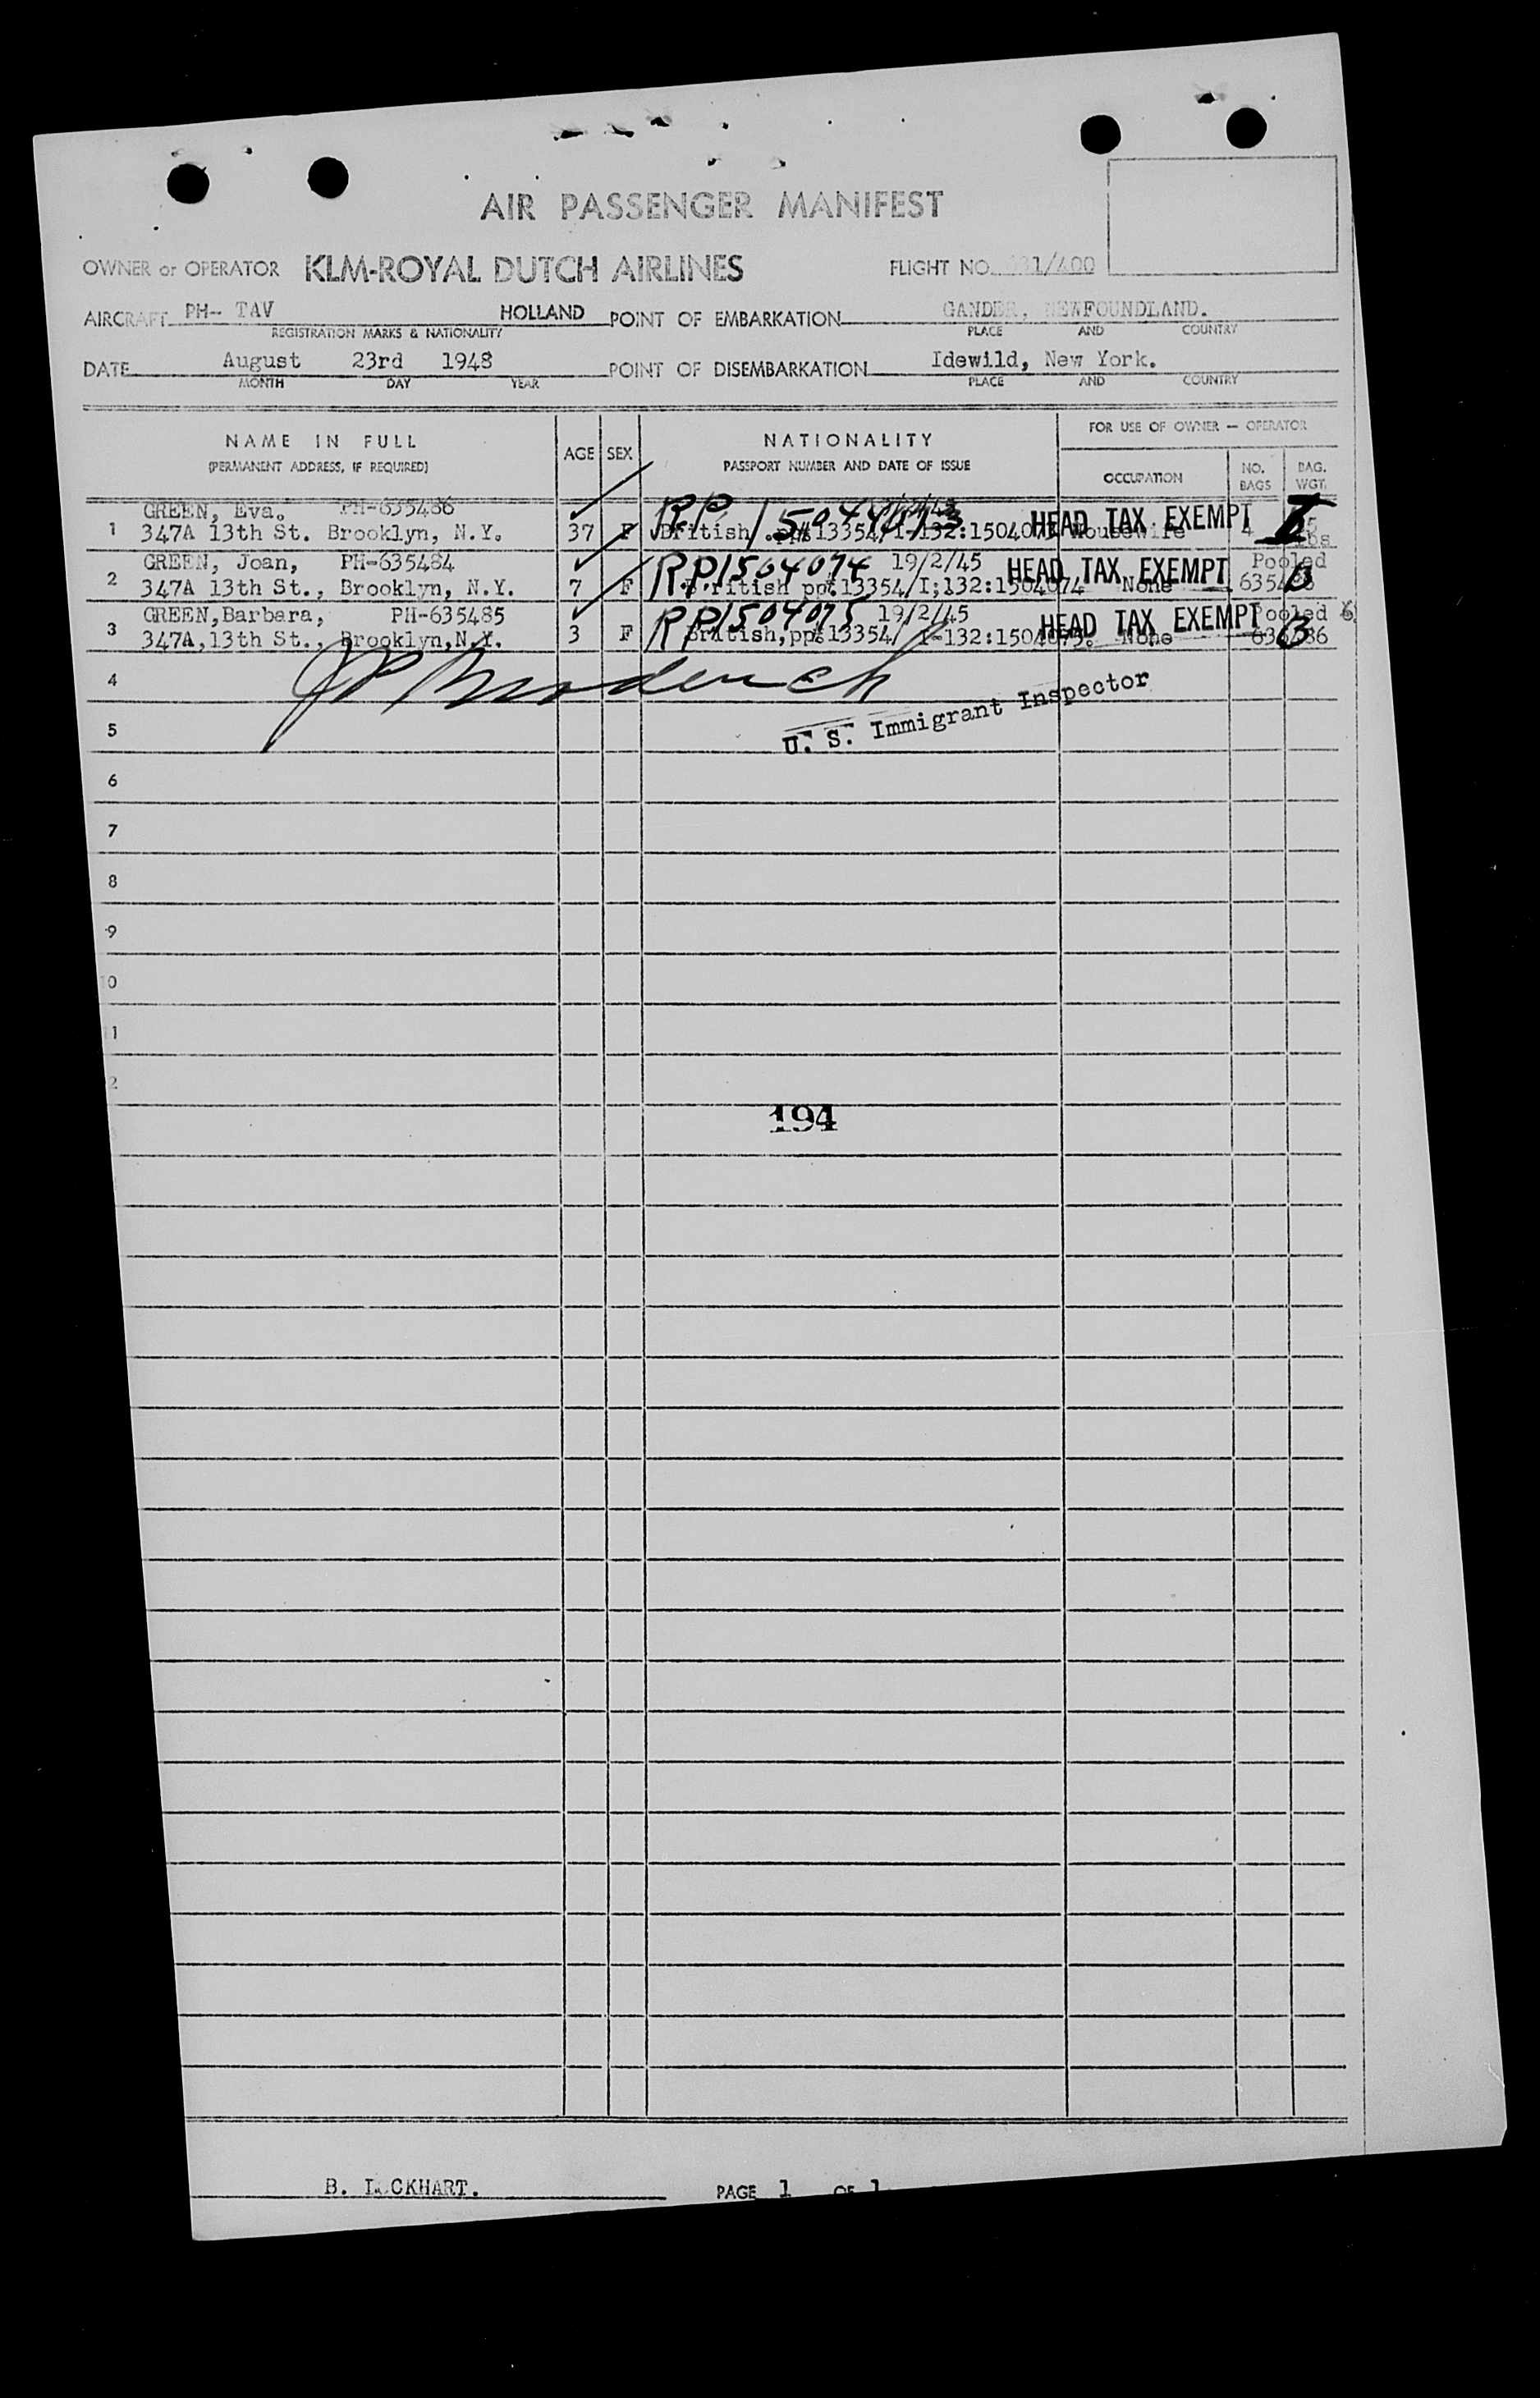 AIR PASSENGER MANIFEST
OWNER or OPERATOR KLM-ROYAL DUTCH AIRLINES FLIGHT NO. 1/400
AIRCRAFT PH- TAV HOLLAND POINT OF EMBARKATION GANDER, NEWFOUNDLAND.
REGISTRATION MARKS & NATIONALITY PLACE AND COUNTRY
DATE August 23rd 1948 POINT OF DISEMBARKATION Idewild, New York.
MONTH DAY YEAR PLACE AND COUNTRY
NAME IN FULL AGE SEX NATIONALITY FOR USE OF OWNER — OPERATOR
(PERMANENT ADDRESS, IF REQUIRED) PASSPORT NUMBER AND DATE OF ISSUE OCCUPATION NO. BAGS BAG. WGT.
GREEN, Eva. PH-635486 RP HEAD TAX EXEMPT
1 347A 13th St. Brooklyn, N.Y. 37 F British Housewife 4
GREEN, Joan, PH-635484 RP1504074 19/2/45 HEAD TAX EXEMPT Pooled
2 347A 13th St., Brooklyn, N.Y. 7 F British pp#13354/I;132:1504074 None
GREEN,Barbara, PH-635485 RP1504075 19/2/45 HEAD TAX EXEMPT Pooled
3 347A,13th St., Brooklyn,N.Y. 3 F British,pp#13354/ I-132:1504075. None
4
U. S. Immigrant Inspector
5
6
7
8
9
0
1
2
194
B. LOCKHART. PAGE 1 OF 1